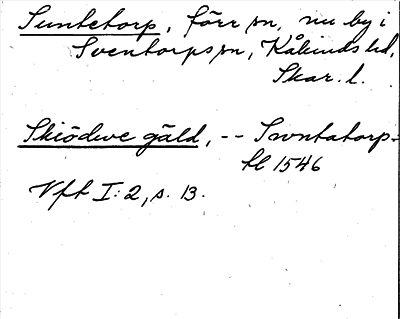 Suntetorp, förr sn, nu by i
Sventorps sn, Kåkinds hd,
Skar. l.
Skiödwe gäld, -- Swntatorp-
hl 1546
Vft I:2, s. 13.